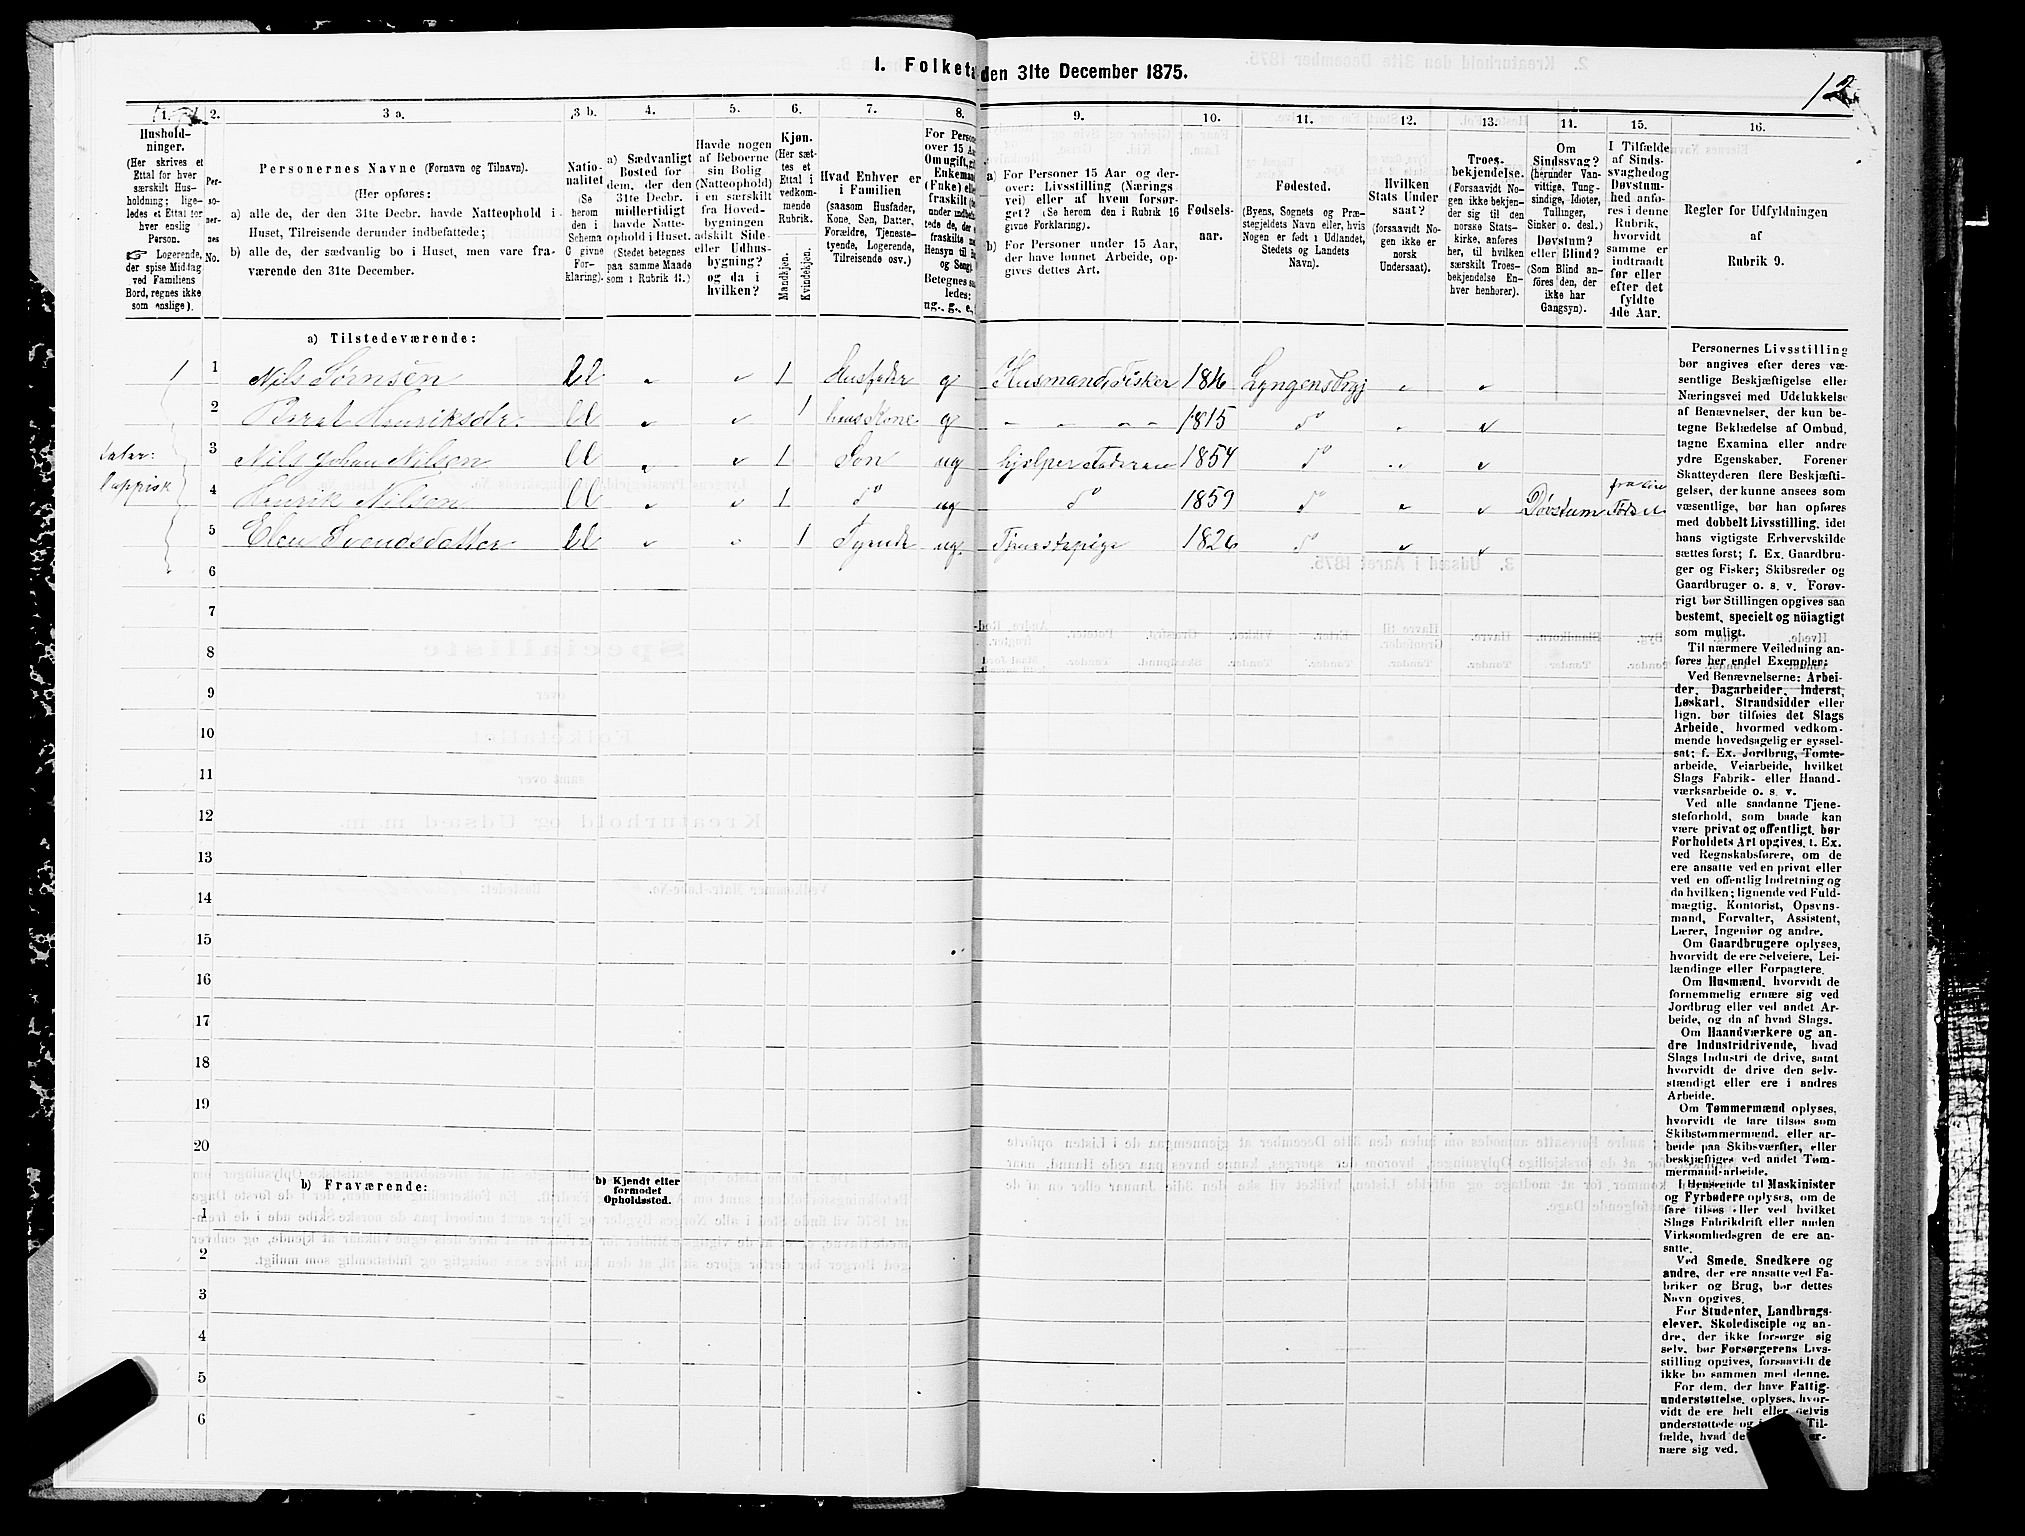 I. Folketa den 31te December 1875.
12
1.
2.
3 a.
3 b.
4.
5.
6.
7.
8.
9.
10.
11.
12.
13.
14.
15.
16.
Hushold-
ninger.
(Her skrives et
Ettal for hver
særskilt Hus-
holdning; lige-
ledes et Ettal for
hver enslig
Person.
☞ Logerende,
der spise Middag
ved Familiens
Bord, regnes ikke
som enslige).
Per-
so-
ner-
nes
No.
Personernes Navne (Fornavn og Tilnavn).
(Her opføres:
a) alle de, der den 31te Decbr. havde Natteophold i
Huset, Tilreisende derunder indbefattede;
b) alle de, der sædvanlig bo i Huset, men vare fra-
værende den 31te December.
Natio-
nalitet
(Se
herom
den i
Schema
G givne
For-
klaring).
a) Sædvanligt
Bosted for
dem, der den
31te Decbr.
midlertidigt
havde Natte-
ophold i Huset.
(Stedet betegnes
paa samme Maade
som i Rubrik 11.)
Havde nogen
af Beboerne
sin Bolig
(Natteophold)
i en særskilt
fra Hoved-
bygningen
adskilt Side-
eller Udhus-
bygning?
og da i
hvilken?
Kjøn.
(Her sæt-
tes et
Ettal i
vedkom-
mende
Rubrik.
Mandkjøn.
Kvindekjøn.
Hvad Enhver er
i Familien
(saasom Husfader,
Kone, Søn, Datter,
Forældre, Tjeneste-
tyende, Logerende,
Tilreisende osv.)
For Person
over 15 Aa
Om ugift, g
Enkeman
(Fnke) elle
fraskilt
under indbef
tede de, der
fraskilte
Hensyn til
og Seng).
Betegnes saa
ledes:
ug., g., e.,
a) For Personer 15 Aar og der-
over: Livsstilling (Nærings
vei) eller af hvem forsør-
get? (Se herom den i Rubrik 16
givne Forklaring).
b) For Personer under 15 Aar,
der have lønnet Arbeide, op-
gives dettes Art.
Fødsels-
aar.
Fødested.
(Byens, Sognets og Præ-
stegjeldets Navn eller, hvis
Nogen er født i Udlandet,
Stedets og Landets
Navn).
Hvilken
Stats Under
saat?
(forsaavidt No-
gen ikke er
norsk
Undersaat).
Troes-
bekjendelse.
(Forsaavidt No-
gen ikke bekjen-
der sig til den
norske Stats-
kirke, anføres
her, til hvilken
særskilt Troes-
bekjendelse En-
hver henhører).
Om
Sindssvag?
(herunder Van-
vittige, Tung-
sindige, Idioter,
Tullinger,
Sinker o. desl.)
Døvstum?
eller Blind?
(Som Blind an-
føres den, der
ikke har
Gangsyn).
I Tilfælde
af Sinds-
svaghed og
Døvstum-
hed anfø-
res i denne
Rubrik,
hvorvidt
samme er
indtraadt
før eller
efter det
fyldte
4de Aar.
Regler for Udfyldningen
af
Rubrik 9.
a) Tilstedeværende:
1 1 Nils Sørnsen ll 1 Husfader g Husmand Fisker 1816 Lyngens Prgj
2 Beret Henriksdtr. ll 1 hans Kone g 1815 do
3 Nils Johan Nilsen ll 1 Søn ug hjelper Faderen 1854 do
4 Henrik Nilsen ll 1 do ug do 1859 do Døvstum fra sin Fødsel
taler:
lappisk
5 Elen Svendsdatter ll 1 Tyende ug. Tjenestepige 1826 do
6
7
8
9
10
11
12
13
14
15
16
17
18
19
20
b) Fraværende:
b) Kjendt eller
formodet
Opholdssted.
1
2
3
4
5
6
Personernes Livsstilling
bør angives efter deres væ-
sentlige Beskjæftigelse eller
Næringsvei med Udelukkelse
af Benævnelser, der kun be-
tegne Beklædelse af Ombud,
tagne Examina eller andre
ydre Egenskaber. Forener
Skatteyderen flere Beskjæfti-
gelser, der kunne ansees som
væsentlige, bør han opføres
med dobbelt Livsstilling, idet
hans vigtigste Erhvervskilde
sættes først; f. Ex. Gaardbru-
ger og Fisker; Skibsreder og
Gaardbruger o. s. v. Forøv-
rigt bør Stillingen opgives saa
bestemt, specielt og nöiagtigt
som muligt.
Til nærmere Veiledning an-
føres her endel Exempler:
Ved Benævnelserne: Arbei-
der, Dagarbeider, Inderst,
Løskarl, Strandsidder eller
lign. bør tilføies det Slags
Arbeide, hvormed vedkom-
mende hovedsagelig er syssel-
sat; f. Ex. Jordbrug, Tomte-
arbeide, Veiarbeide, hvilket
Slags Fabrik- eller Haand-
værksarbeide o. s. v.
Ved alle saadanne Tjene-
steforhold, som baade kan
være privat og offentligt, bør
Forholdets Art opgives, f. Ex.
ved Regnskabsførere, om de
ere ansatte ved en privat eller
ved en offentlig Indretning og
da hvilken; lignende ved Fuld-
mægtig, Kontorist, Opsyns-
mand, Forvalter, Assistent,
Lærer, Ingeniør og andre.
Om Gaardbrugere oplyses,
hvorvidt de ere Selveiere, Lei-
lændinge eller Forpagtere.
Om Husmænd, hvorvidt de
fornemmelig ernære sig ved
Jordbrug eller ved andet Ar-
beide, og da af hvad Slags.
Om Haandværkere og an-
dre Industridrivende, hvad
Slags Industri de drive, samt
hvorvidt de drive den selv-
stændigt eller ere i andres
Arbeide.
Om Tømmermænd oplyses,
hvorvidt de fare tilsøs som
Skibstømmermænd, eller ar-
beide paa Skibsværfter, eller
beskjæftiges ved andet Tøm-
mermandsarbeide.
I Henseende til Maskinister
og Fyrbødere oplyses, om de
fare tilsøs eller ved hvilket
Slags Fabrikdrift eller anden
Virksomhedsgren de ere an-
satte.
Ved Smede, Snedkere og
andre, der ere ansatte ved Fa-
briker og Brug, bør dettes
Navn opgives.
For Studenter, Landbrugs-
elever, Skoledisciple og an-
dre, der ikke forsørge sig
selv, bør Forsørgerens Livs-
stilling opgives, forsaavidt de
ikke bo sammen med denne.
For dem, der have Fattig-
understøttelse, oplyses, hvor-
vidt de ere helt eller delvis
understøttede og i Til-
fælde, hvad de er-
nære sig ved.